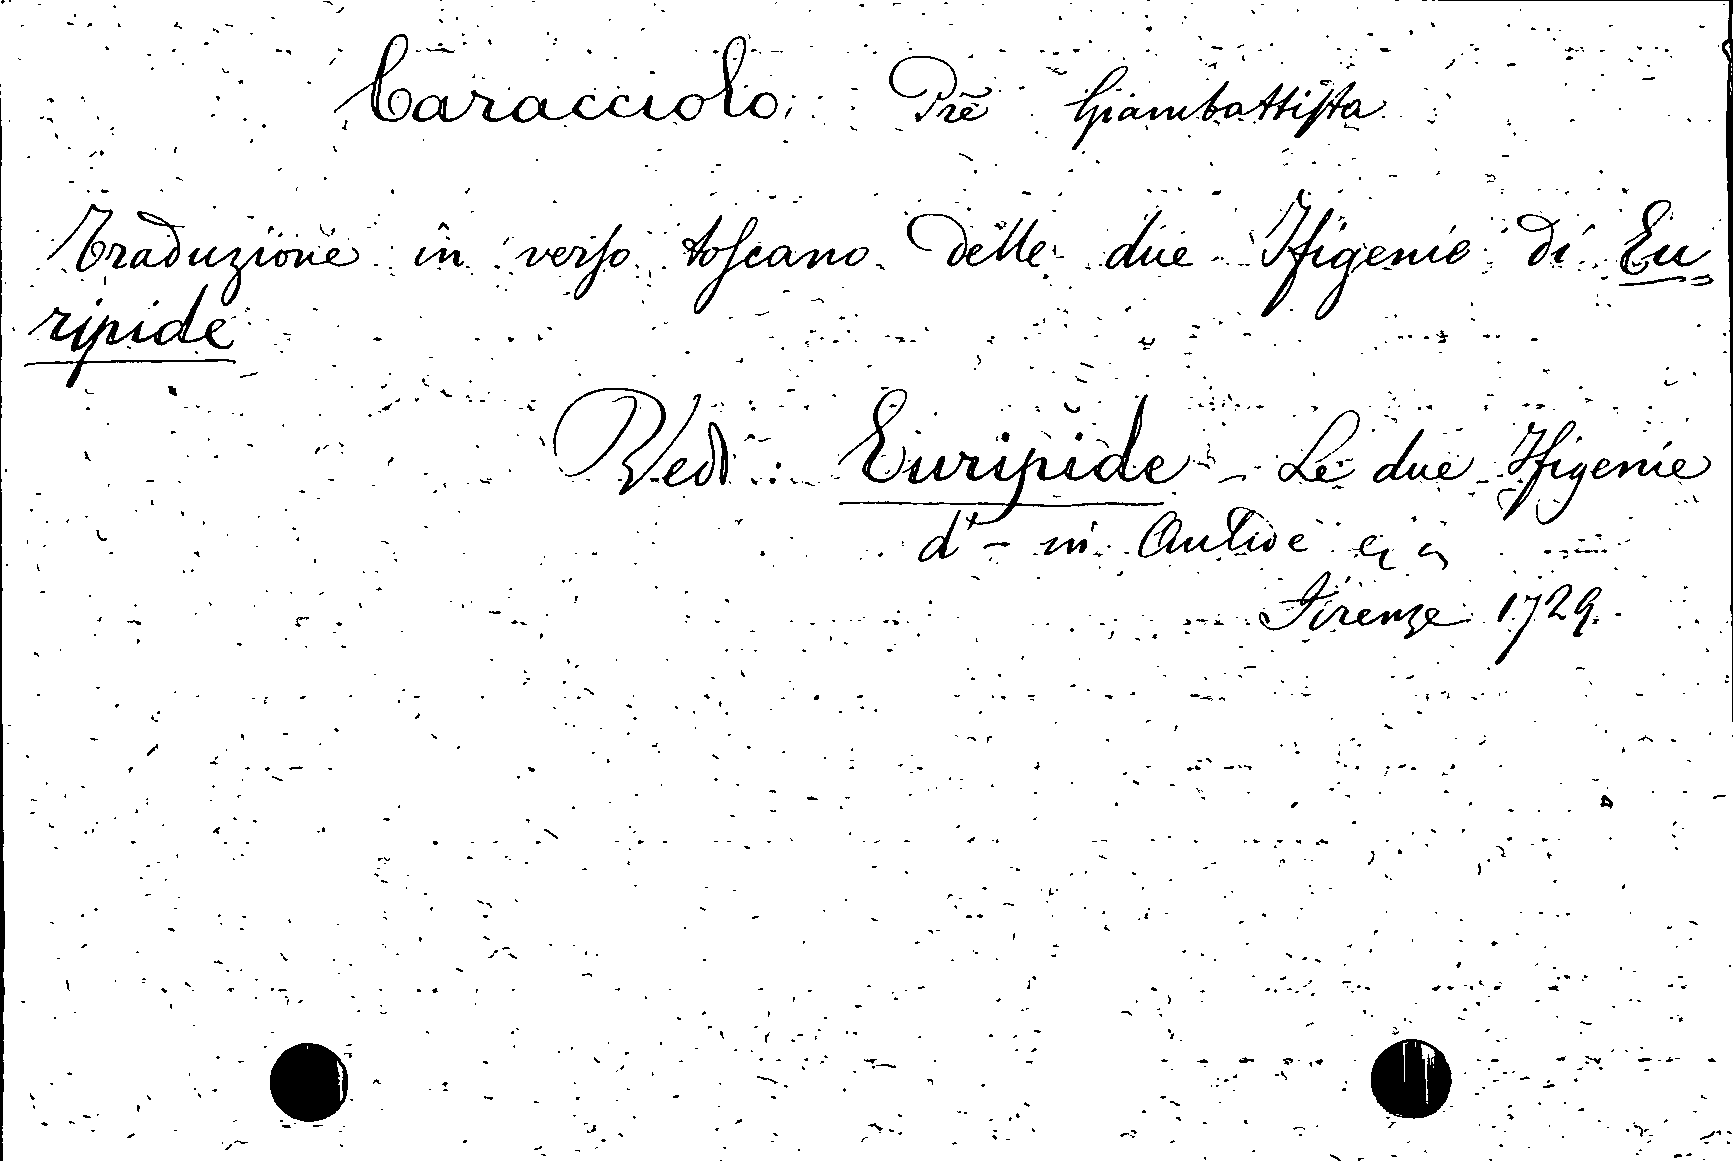 Caracciolo Pre Giambattista
Traduzione in verso toscano delle due Ifigenie di Eu
ripide
Vedi: Euripide - Le due Ifigenie
d - in Aulide
Firenze 1729.